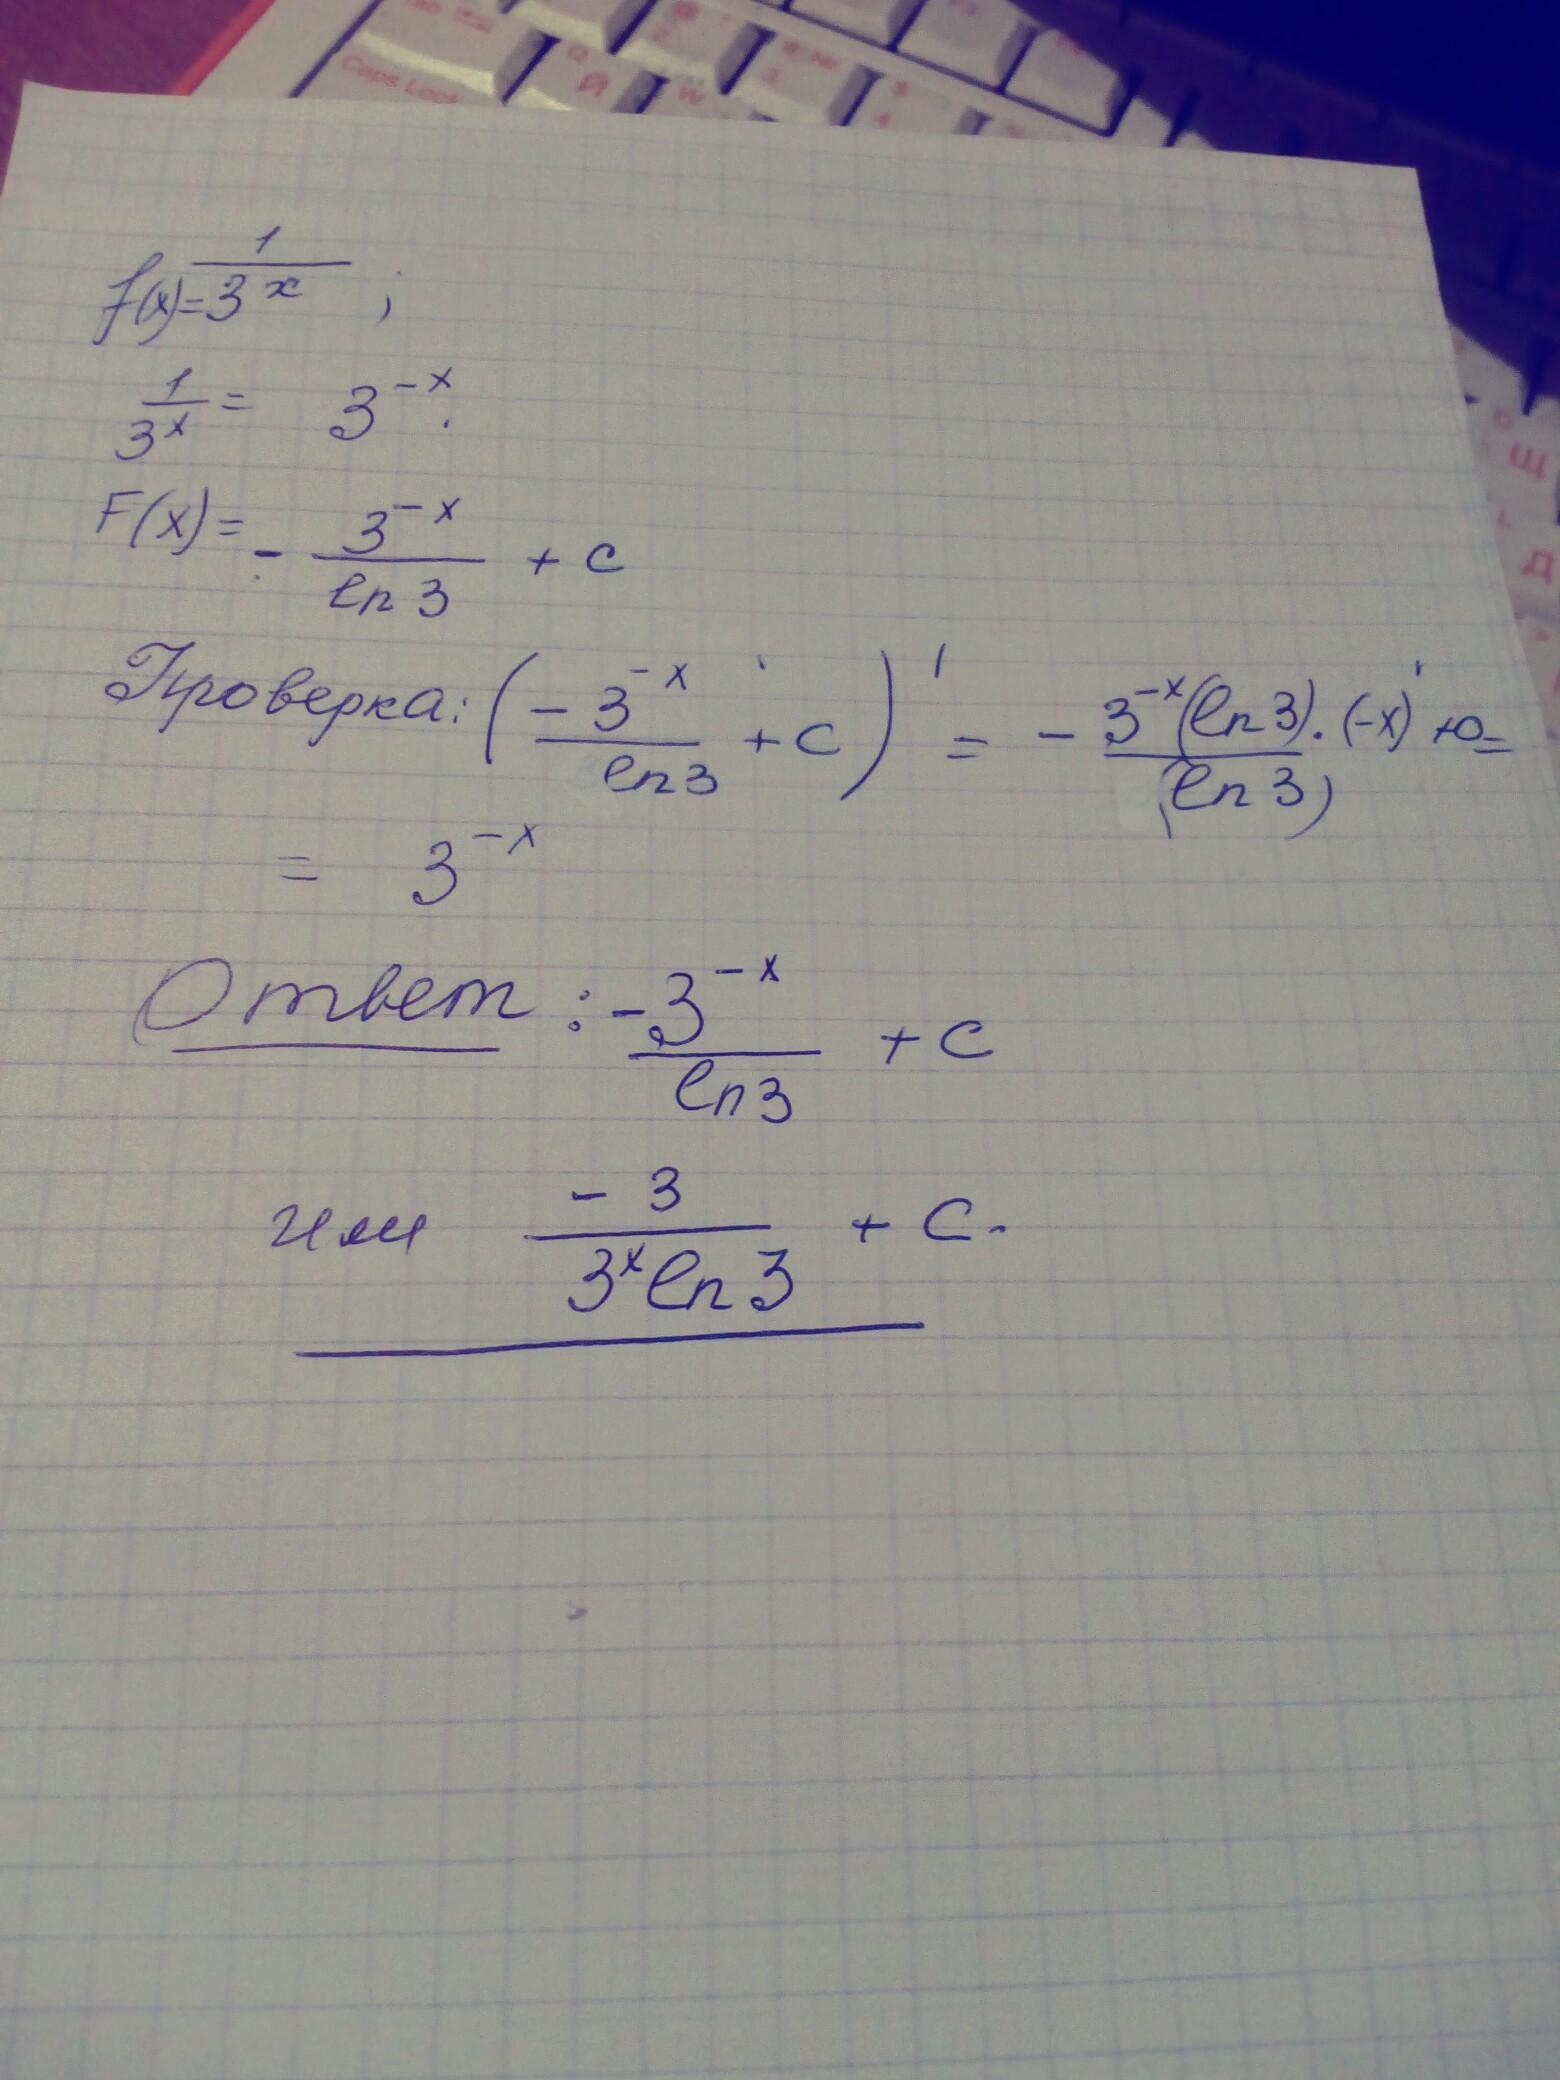 Tab
Caps Lock
Q Й
W
2
3
4
Щ
Д
f(x)= 1/3^x ;
1/3^x = 3^-x.
F(x)= - 3^-x/ln 3 + c
Проверка: (-3^-x/ln 3 + c)' = - 3^-x(ln 3)·(-x)'+0/(ln 3) =
= 3^-x
Ответ: -3^-x/ln 3 + c
или -3/3^x ln 3 + c.